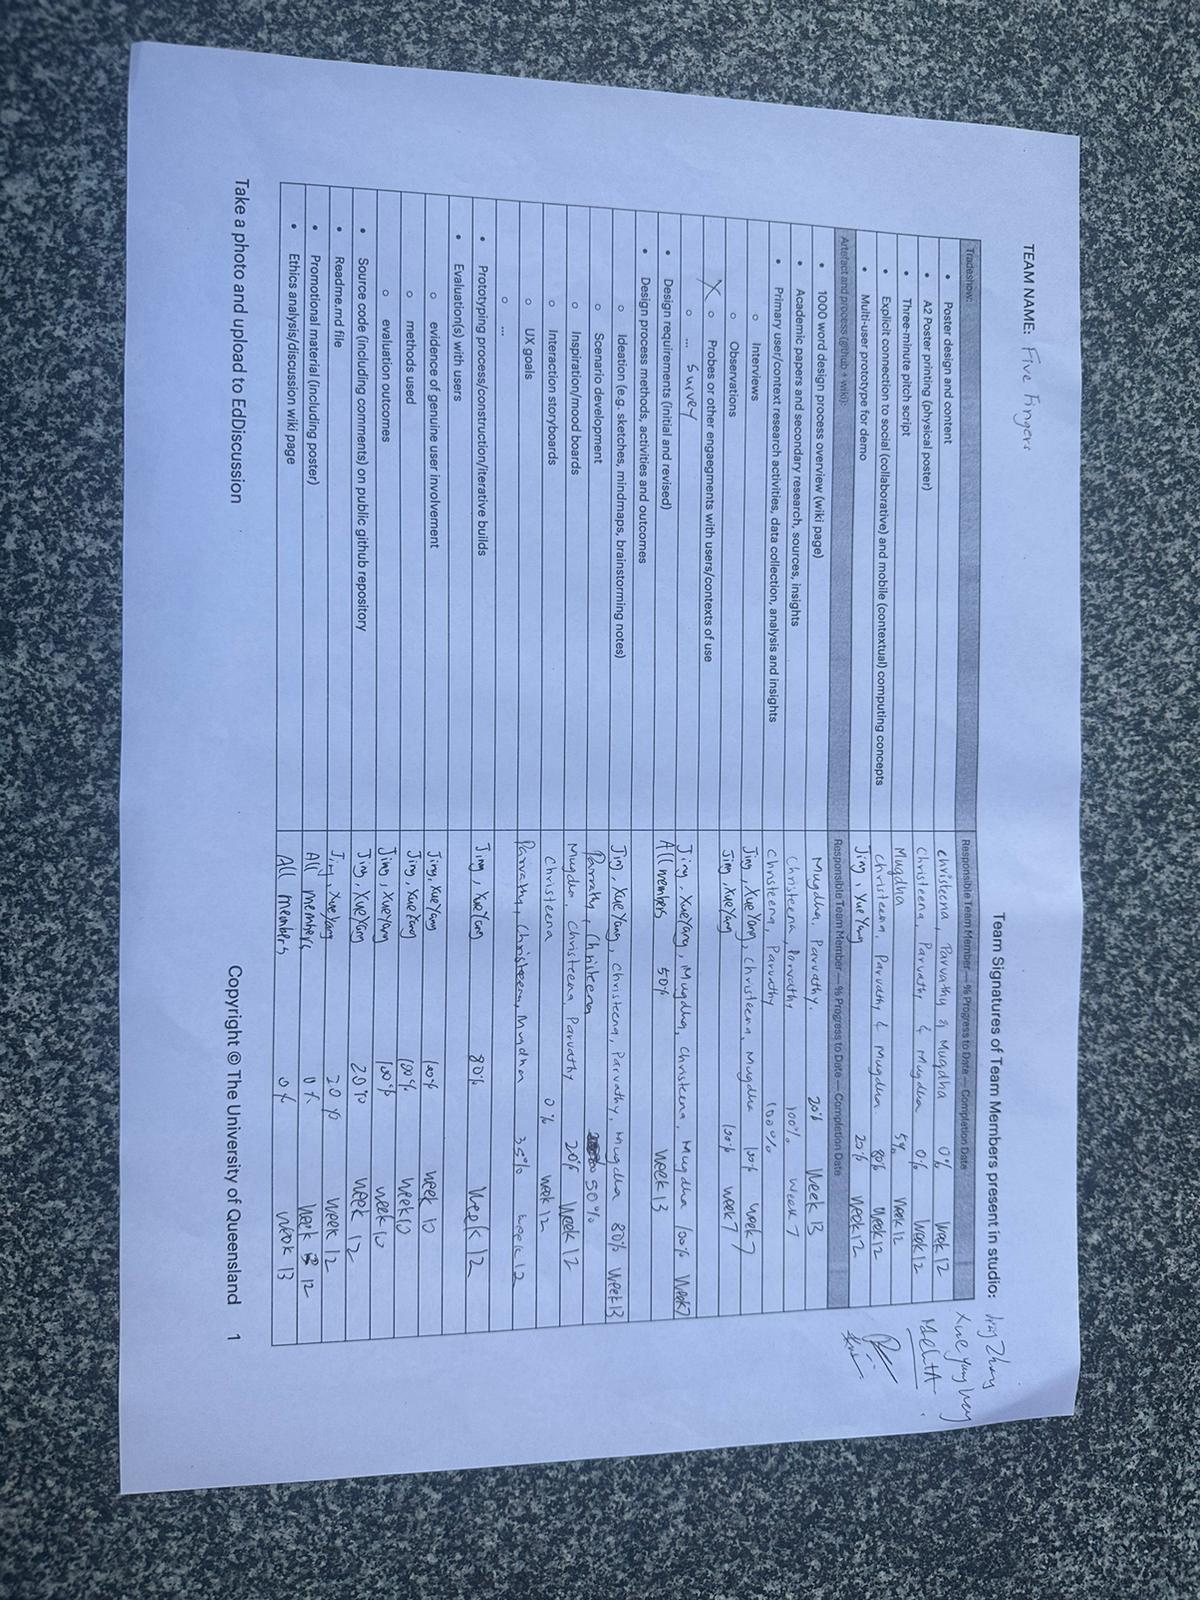 TEAM NAME: Five Fingers
Team Signatures of Team Members present in studio: Jing Zhang
Xue Yang
MehtA
Tradeshow: Responsible Team Member — % Progress to Date — Completion Date
• Poster design and content christeena, Parvathy & Mugdha 0% Week 12
• A2 Poster printing (physical poster) Christeena, Parvathy & Mugdha 0% Week 12
• Three-minute pitch script Mugdha 5% Week 12
• Explicit connection to social (collaborative) and mobile (contextual) computing concepts Christeena, Parvathy & Mugdha. 80% Week 12
• Multi-user prototype for demo Jing, XueYang 20% Week 12
Artefact and process (github + wiki): Responsible Team Member — % Progress to Date — Completion Date
• 1000 word design process overview (wiki page) Mugdha, Parvathy. 20% Week 13
• Academic papers and secondary research, sources, insights Christeena, Parvathy 100% Week 7
• Primary user/context research activities, data collection, analysis and insights Christeena, Parvathy 100%
o Interviews Jing, XueYang, Christeena, Mugdha 100% week 7
o Observations Jing, XueYang 100% week 7
X o Probes or other engaegments with users/contexts of use
o ... Survey Jing, XueYang, Mugdha, Christeena, Mugdha 100% Week 7
• Design requirements (initial and revised) All members 50% Week 13
• Design process methods, activities and outcomes
o Ideation (e.g. sketches, mindmaps, brainstorming notes) Jing, XueYang, Christeena, Parvathy, Mugdha 80% Week 13
o Scenario development Parvathy, Christeena 50%
o Inspiration/mood boards Mugdha, Christeena, Parvathy 20% Week 12
o Interaction storyboards Christeena 0% Week 12
o UX goals Parvathy, Christeena, Mugdha 35% week 12
o ...
• Prototyping process/construction/iterative builds Jing, XueYang 80% Week 12
• Evaluation(s) with users
o evidence of genuine user involvement Jing, XueYang 100% week 10
o methods used Jing, XueYang 100% Week 10
o evaluation outcomes Jing, XueYang 100% week 10
• Source code (including comments) on public github repository Jing, XueYang 20% Week 12
• Readme.md file Jing, XueYang 20% Week 12
• Promotional material (including poster) All members 0% Week 12
• Ethics analysis/discussion wiki page All members 0% Week 13
Take a photo and upload to EdDiscussion
Copyright © The University of Queensland 1